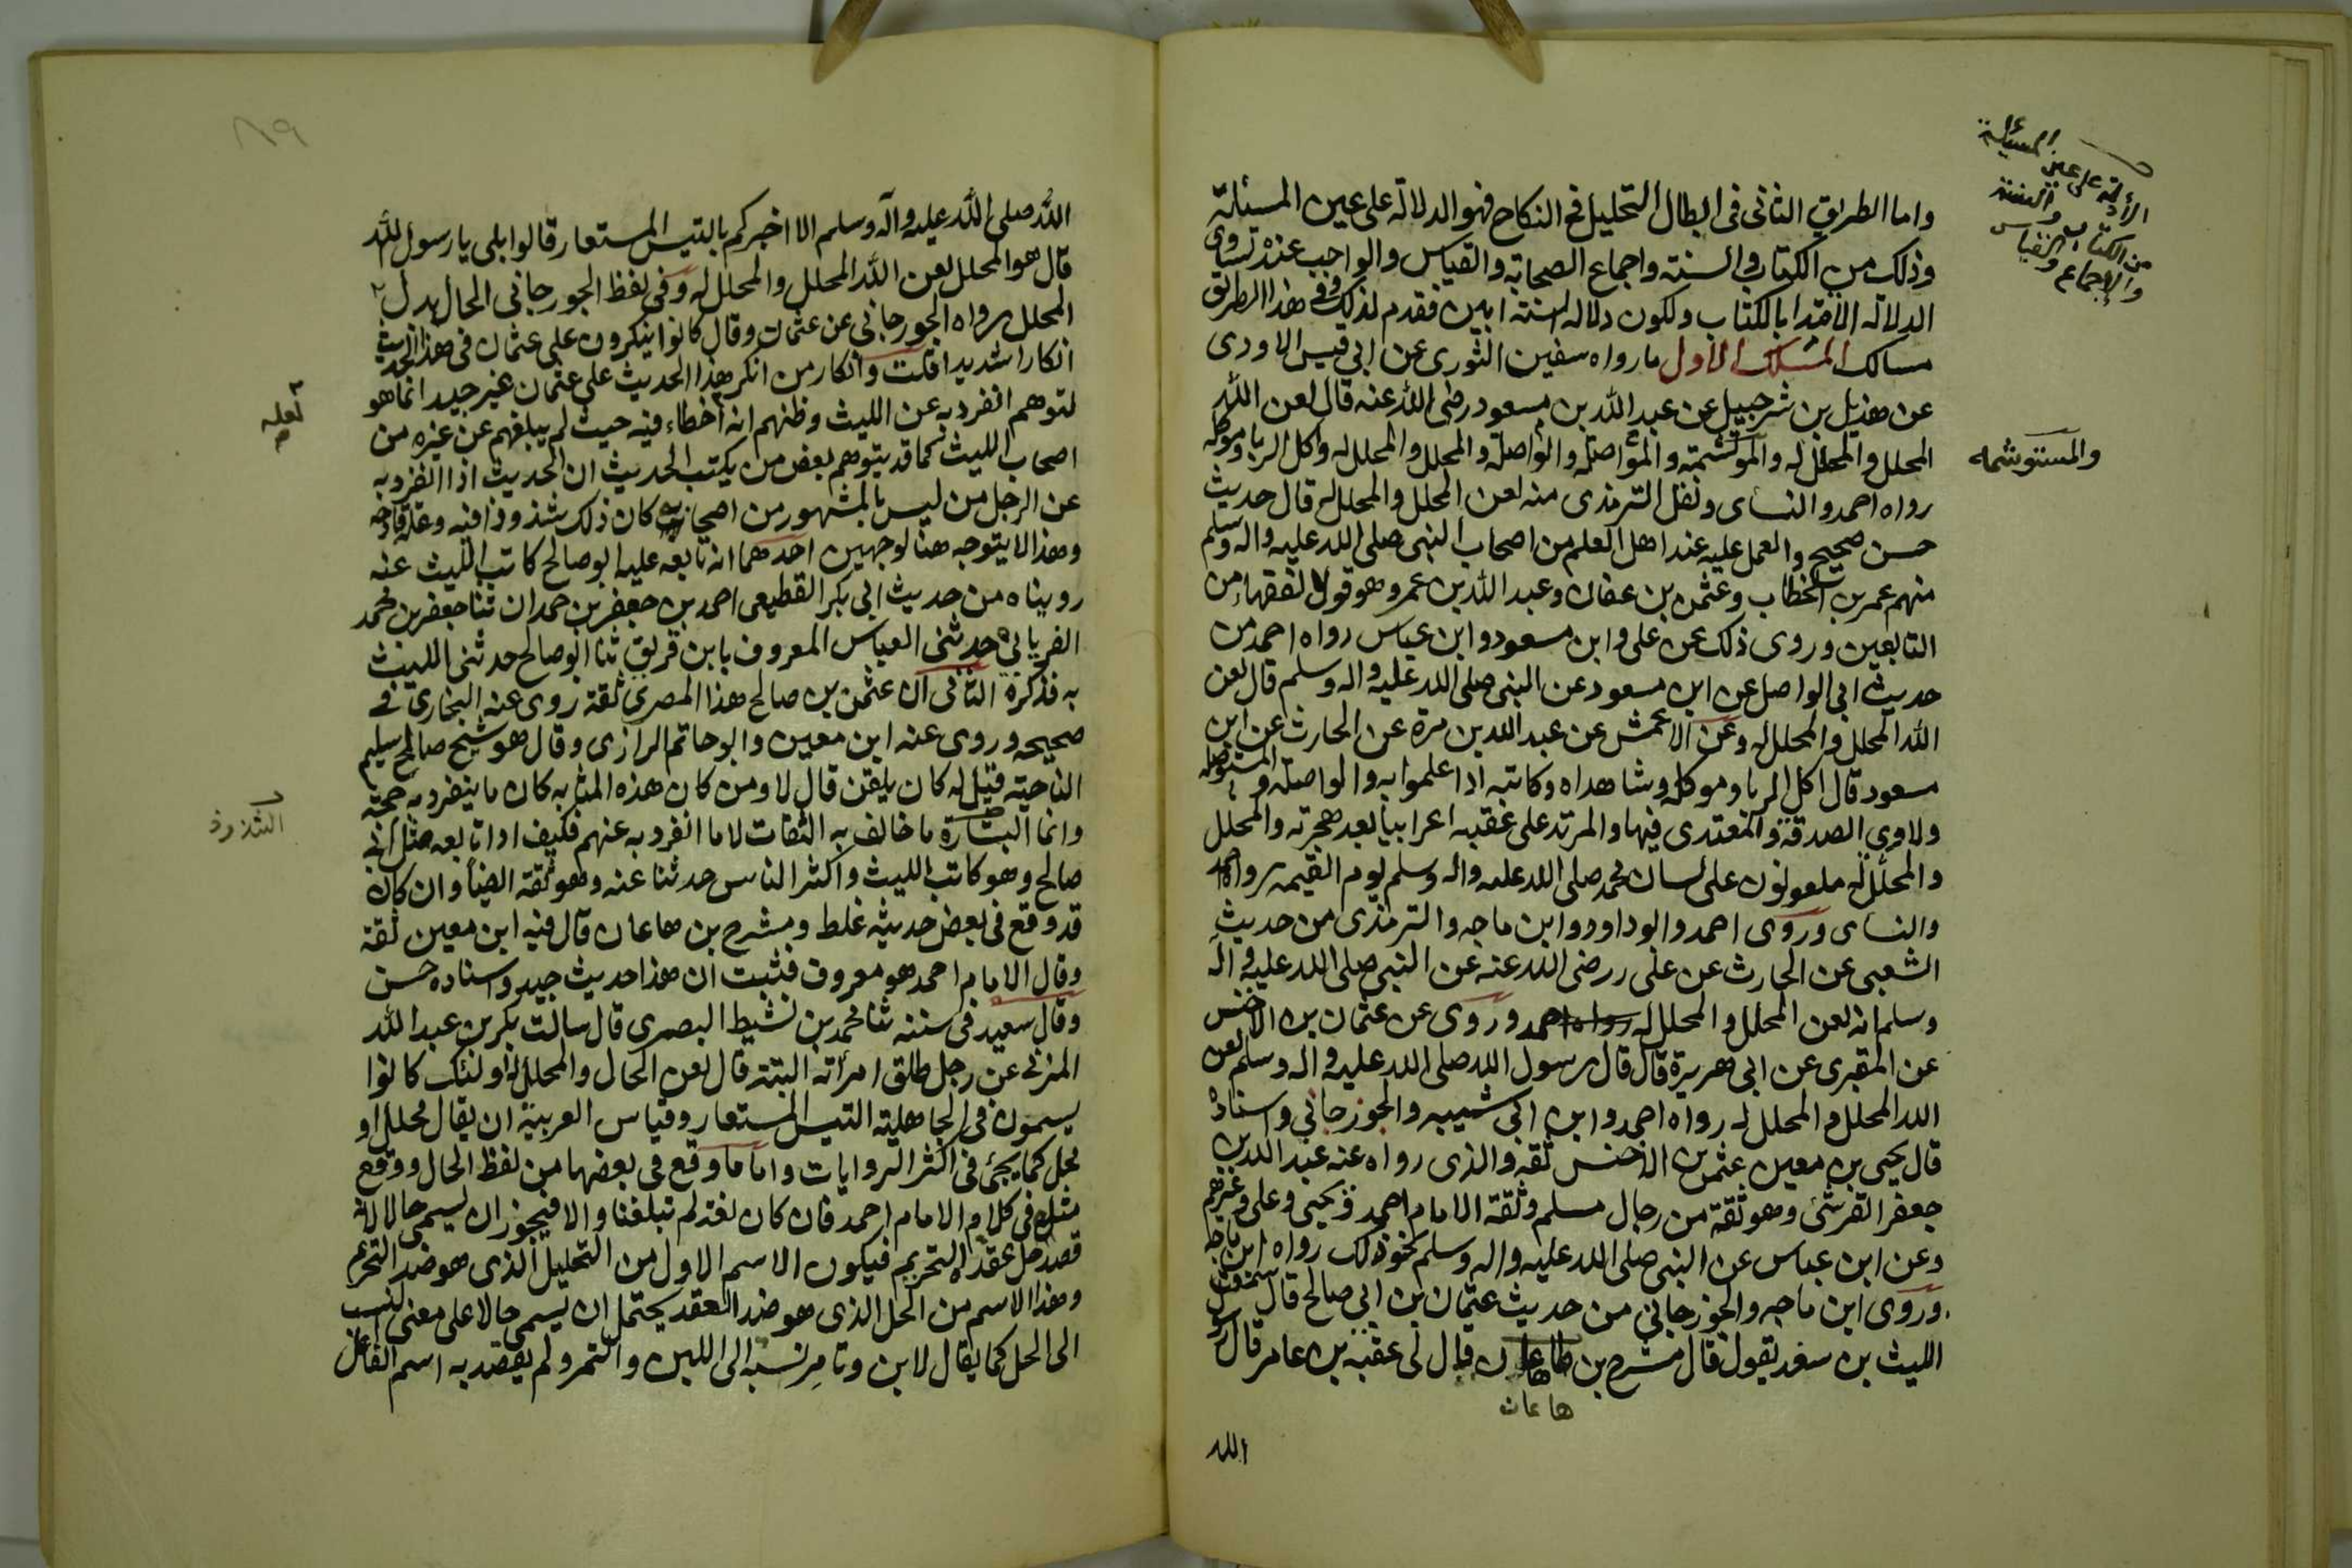 الأدلة على عين المسئلة
من الكتاب والسنة
والإجماع والقياس
واما الطريق الثانى فى ابطال التحليل فى النكاح فهو الدلالة على عين المسئلة
وذلك من الكتاب والسنة واجماع الصحابة والقياس والواجب عند تساوى
الدلالة الابتدا بالكتاب ولكون دلالة السنة ابين فقدم لذلك وفى هذا الطريق
مسالك المسلك الاول ما رواه سفين الثورى عن ابى قيس الاودى
عن هذيل بن شرحبيل عن عبد الله بن مسعود رضى الله عنه قال لعن الله
المحلل والمحلل له والموتشمة والمؤاصلة والواصلة والمحلل والمحلل له واكل الربا وموكله
والمستوشمه
رواه احمد والنساى ونقل الترمذى منه لعن المحلل والمحلل له قال حديث
حسن صحيح والعمل عليه عند اهل العلم من اصحاب النبى صلى الله عليه واله وسلم
منهم عمر بن الخطاب وعثمن بن عفان وعبد الله بن عمر وهو قول الفقهاء من
التابعين وروى ذلك عن على وابن مسعود وابن عباس رواه احمد من
حديث ابى الواصل عن ابن مسعود عن النبى صلى الله عليه واله وسلم قال لعن
الله المحلل والمحلل له وعن الاعمش عن عبد الله بن مرة عن الحارث عن ابن
مسعود قال اكل الربا وموكله وشاهداه وكاتبه اذا علموا به والواصلة والمستوصله
ولاوى الصدقة والمتعدى فيها والمرتد على عقبيه اعرابيا بعد هجرته والمحلل
والمحلل له ملعونون على لسان محمد صلى الله عليه واله وسلم يوم القيمه رواه احمد
والنساى وروى احمد وابو داود وابن ماجه والترمذى من حديث
الشعبى عن الحارث عن على رضى الله عنه عن النبى صلى الله عليه واله
وسلم انه لعن المحلل والمحلل له رواه احمد وروى عن عثمان بن الاخنس
عن المقبرى عن ابى هريرة قال قال رسول الله صلى الله عليه واله وسلم لعن
الله المحلل والمحلل له رواه احمد وابن ابى شيبه والجوزجانى واسناده
قال يحيى بن معين عثمن بن الاخنس ثقة والذى رواه عنه عبد الله بن
جعفر القرشى وهو ثقة من رجال مسلم وثقة الامام احمد ويحيى وعلى وغيرهم
وعن ابن عباس عن النبى صلى الله عليه واله وسلم نحو ذلك رواه ابن ماجه
وروى ابن ماجه والجوزجانى من حديث عثمان بن ابى صالح قال سمعت
الليث بن سعد يقول قال مشرح بن هاعان قال لى عقبه بن عامر قال رسول
هاعان
الله
٨٩
الله صلى الله عليه وآله وسلم الا اخبركم بالتيس المستعار قالوا بلى يا رسول الله
قال هو المحلل لعن الله المحلل والمحلل له وفى لفظ الجورجانى الحال بدل
المحلل رواه الجورجانى عن عثمان وقال كانوا ينكرون على عثمان فى هذا الحديث
انكارا شديدا قلت وانكار من انكر هذا الحديث على عثمان غير جيد انما هو
لتوهم انفرد به عن الليث وظنهم انه اخطاء فيه حيث لم يبلغهم عن غيره من
لعله
اصحاب الليث كما قد يتوهم بعض من يكتب الحديث ان الحديث اذا انفرد به
عن الرجل من ليس بالمشهور من اصحابه كان ذلك شذوذا فيه وعلة قادحه
وهذا لا يتوجه هنا لوجهين احدهما انه تابعه عليه ابو صالح كاتب الليث عنه
رويناه من حديث ابى بكر القطيعى احمد بن جعفر بن حمدان ثنا جعفر بن محمد
الفريابى حدثنى العباس المعروف بابن فريق ثنا ابو صالح حدثنى الليث
به فذكره الثانى ان عثمن بن صالح هذا المصرى ثقة روى عنه البخارى فى
صحيحه وروى عنه ابن معين وابو حاتم الرازى وقال هو شيخ صالح سليم
الناحية قيل له كان يلقن قال لا ومن كان هذه المثابه كان ما ينفرد به حجة
وانما الشارة ما خالف به الثقات لا ما انفرد به عنهم فكيف اذا تابعه مثل ابى
الشذوذ
صالح وهو كاتب الليث واكثر الناس حدثنا عنه وهو ثقة ايضا وان كان
قد وقع فى بعض حديثه غلط ومشرح بن هاعان قال فيه ابن معين ثقة
وقال الامام احمد هو معروف فثبت ان هذا حديث جيد واسناده حسن
وقال سعيد فى سننه ثنا محمد بن نشيط البصرى قال سالت بكر بن عبد الله
المزنى عن رجل طلق امرأته البتة قال لعن الحال والمحلل له اولئك كانوا
يسمون فى الجاهلية التيس المستعار وقياس العربية ان يقال محلل او
محل كما يجئ فى اكثر الروايات واما ما وقع فى بعضها من لفظ الحال ووقع
مثله فى كلام الامام احمد فان كان لغة لم تبلغنا والا فيجوز ان يسمى حالا لانه
قصد حل عقدة التحريم فيكون الاسم الاول من التحليل الذى هو ضد التحريم
وهذا الاسم من الحل الذى هو ضد العقد يحتمل ان يسمى حالا على معنى النسب
الى الحل كما يقال لابن وتامر نسبة الى اللبن والتمر ولم يقصد به اسم الفاعل